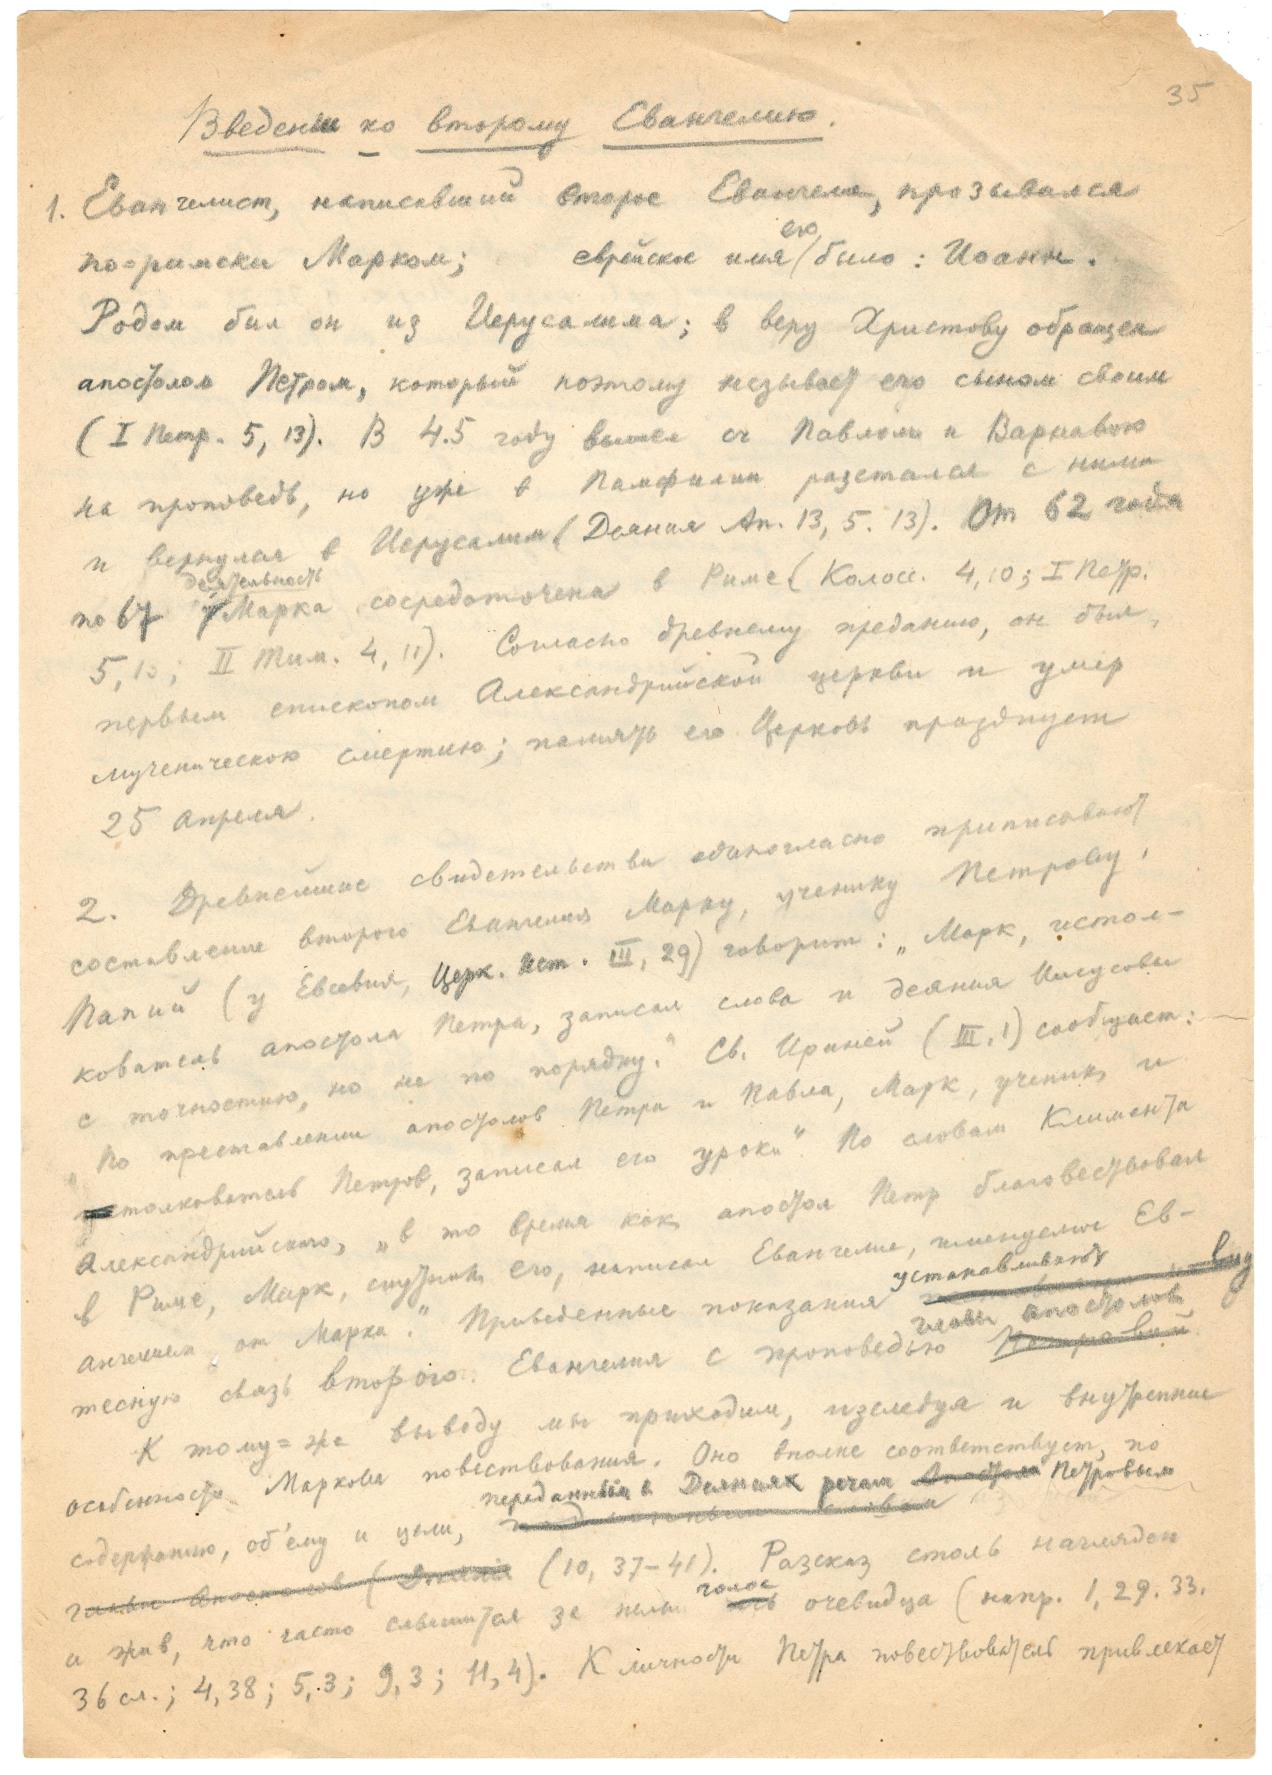 35
Введение ко второму Евангелию.
1. Евангелист, написавший второе Евангелие, прозывался
по-римски Марком; еврейское имя его было: Иоанн.
Родом был он из Иерусалима; в веру Христову обращен
апостолом Петром, который поэтому называет его сыном своим
(I Петр. 5, 13). В 45 году вышел с Павлом и Варнавою
на проповедь, но уже в Памфилии разстался с ними
и вернулся в Иерусалим (Деяния Ап. 13, 5. 13). От 62 года
по 67 деятельность Марка сосредоточена в Риме (Колосс. 4, 10; I Петр.
5, 13; II Тим. 4, 11). Согласно древнему преданию, он был
первым епископом Александрийской церкви и умер
мученическою смертию; память его Церковь празднует
25 апреля.
2. Древнейшие свидетельства единогласно приписывают
составление второго Евангелия Марку, ученику Петрову.
Папий (у Евсевия, Церк. Ист. III, 29) говорит: „Марк, истол-
кователь апостола Петра, записал слова и деяния Иисусовы
с точностию, но не по порядку." Св. Ириней (III, 1) сообщает:
„По преставлении апостолов Петра и Павла, Марк, ученик и
толкователь Петров, записал его уроки". По словам Климента
Александрийского, „в то время как апостол Петр благовествовал
в Риме, Марк, спутник его, написал Евангелие, именуемое Ев-
ангелием от Марка." Приведенные показания устанавливают
тесную связь второго Евангелия с проповедью главы апостолов
К тому-же выводу мы приходим, изследуя и внутренние
особенности Маркова повествования. Оно вполне соответствует, по
содержанию, об'ему и цели, переданным в Деяниях речам Петровым
главы Апостолов (Деяния (10, 37-41). Разсказ столь нагляден
и жив, что часто слышится за ним голос очевидца (напр. 1, 29. 33.
36 сл.; 4, 38; 5, 3; 9, 3; 11, 4). К личности Петра повествователь привлекает